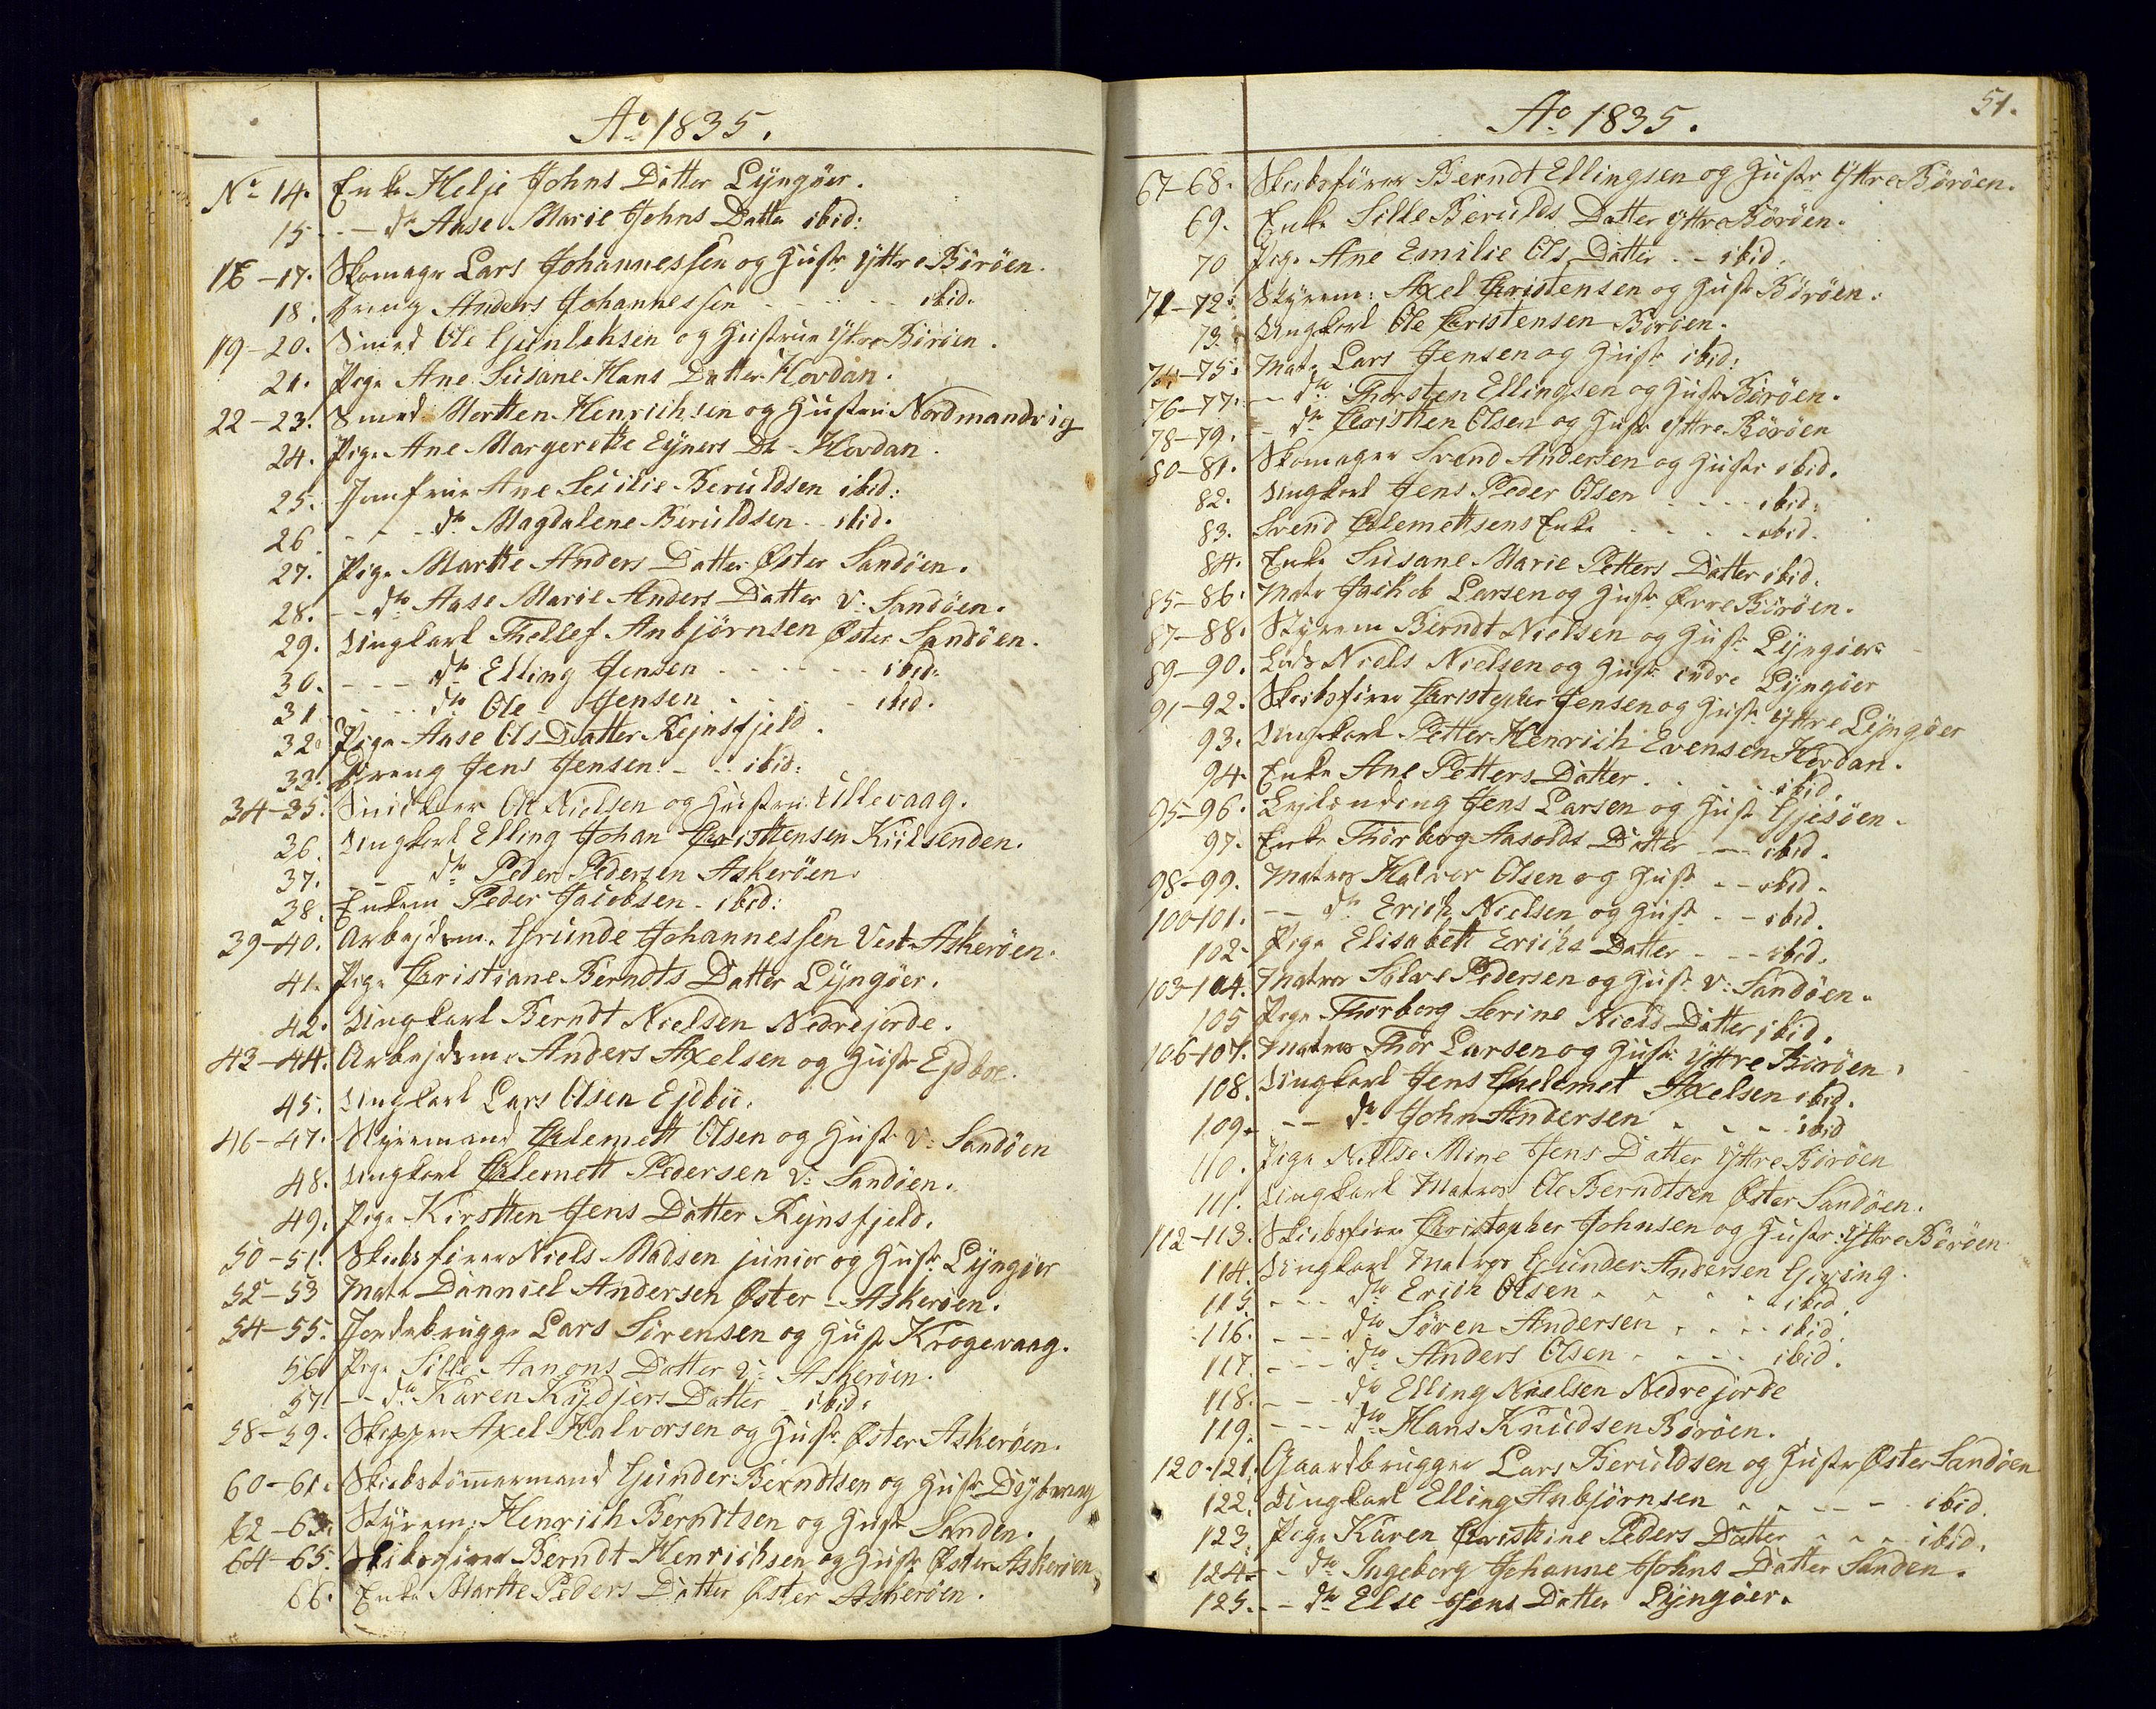 Ao 1835.
No 14. Enke Helje Johns Datter Lÿngöer.
15 - - do Aase Marie Johns Datter ibid:
16-17. Skomager Lars Johannessen og Hustr Ÿttre Böröen.
18. Dreng Anders Johannessen - - - - ibid.
19-20. Smed Ole Gunlaksen og Hustrue Ÿtre Böröen.
21. Pige Ane Susane Hans Datter Hovdan.
22-23. Smed Mortten Henrichsen og Hustrue Nordmandvig
24. Pige Ane Margrethe Eÿners Dr - Hovdan.
25. Jomfrue Ane Secilie Beruldsen ibid:
26 - - - do Magdalene Beruldsen - ibid.
27. Pige Marthe Anders Datter Øster Sandöen.
28. - - do Aase Marie Anders Datter V: Sandöen.
29. Ungkarl Thellef Anbjörnsen Øster Sandöen.
30. - - - do Elling Jensen - - - - ibid:
31 - - - do Ole Jensen - - - - ibid.
32. Pige Aase Ols Datter Rejnsfjeld.
33. Dreng Jens Jensen - - ibid:
34-35. Snidker Ole Nielsen og Hustrue Ullevaag.
36. Ungkarl Elling Johan Christensen Kiilsenden.
37. - - do Peder Pedersen Askeröen.
38. Enkem Peder Jacobsen - ibid:
39-40. Arbejdsm. Grunde Johannessen Vest-Askeröen.
41. Pige Christiane Berndts Datter Lÿngöer.
42. Ungkarl Berndt Nielsen Nedrejorde.
43-44. Arbejdsm. Anders Axelsen og Hustr Ejdboe.
45. Ungkarl Lars Olsen Ejdboe.
46-47. Stÿremand Chlemett Olsen og Hust V: Sandöen
48. Ungkarl Chlemett Pedersen V: Sandöen.
49. Pige Kirstten Jens Datter Rejnsfjeld.
50-51. Skibsförer Niels Madsen junior og Hustr Lÿngöer
52-53 Matr Danniel Andersen Øster-Askeröen.
54-55. Jordebrugger Lars Sörensen og Hustr Krogevaag.
56. Pige Sille Aanons Datter V: Askeröen.
57. - - do Karen Kÿdjers Datter - ibid:
58-59. Skipper Axel Halvorsen og Hustr Øster Askeröen.
60-61. Skibstömmermand Gunder Berndtsen og Hustr
62-63. Stÿrem: Henrich Berndtsen og Hustr Sanden.
64-65. Skibsförer Berndt Henrichsen og Hustr Øster Askeröen
66. Enke Marthe Peders Datter Øster Askeröen.
Ao 1835.
51.
67-68. Skibsförer Berndt Ellingsen og Hustr Ÿttre Böröen.
69. Enke Sille Berulds Datter Ÿttre Böröen.
70 Pige Ane Emilie Ols Datter - - ibid.
71-72. Stÿrem: Axel Christensen og Hustr Böröen.
73. Ungkarl Ole Christensen Böröen.
74-75. Matr Lars Jensen og Hustr ibid:
76-77. - - do Thorsten Ellingsen og Hustr Böröen.
78-79. - - do Christen Olsen og Hustr Ÿttre Böröen
80-81. Skomager Svend Andersen og Hustr ibid.
82. Ungkarl Jens Peder Olsen - - - - ibid:
83. Svend Chlemettsens Enke - - - - ibid.
84. Enke Susane Marie Petters Datter ibid.
85-86. Matr Jackob Larsen og Hustr Övre Böröen.
87-88. Stÿrem Berndt Nielsen og Hustr Lÿngöer
89-90. Lods Niels Nielsen og Hustr indre Lÿngöer
91-92. Skibsförer Christopher Jensen og Hustr Ÿttre Lÿngöer
93. Ungkarl Petter Henrich Evensen Hovdan.
94. Enke Ane Petters Datter - - - ibid.
95-96. Jens Larsen og Hustr Gjesöen.
97. Enke Thorborg Aasolds Datter - - ibid.
98-99. Matros Halvor Olsen og Hustr - - ibid.
100-101. - - do Erich Nielsen og Hustr - - ibid.
102. Pige Elisabett Erichs Datter - - - ibid.
103-104. Matros Salve Pedersen og Hustr V: Sandöen.
105 Pige Thorborg Serine Niels Datter ibid.
106-107. Matros Thor Larsen og Hustr Ÿttre Böröen.
108. Ungkarl Jens Chelemet Axelsen ibid.
109. - - do John Andersen - - - ibid
110. Pige Nielse Mine Jens Datter Ÿttre Böröen
111. Ungkarl Matros Ole Berndtsen Øster Sandöen.
112-113. Skibsförer Christopher Johnsen og Hustr: Ÿttre Böröen
114. Ungkarl Matros Gunder Andersen Gjeving.
115. - - - do Erich Olsen - - - - ibid.
116. - - - do Sören Andersen - - - - ibid.
117. - - - do Anders Olsen - - - - ibid.
118. - - - do Elling Nielsen Nedrejorde
119. - - - do Hans Knudsen Böröen.
120-121. Gaardbrugger Lars Beruldsen og Hustr Øster Sandöen
122. Ungkarl Elling Anbjörnsen - - - - ibid.
123. Pige Karen Christine Peders Datter - - - ibid.
124. - do Ingeborg Johanne Johns Datter Sanden.
125. - - do Else Jens Datter Lÿngöer.